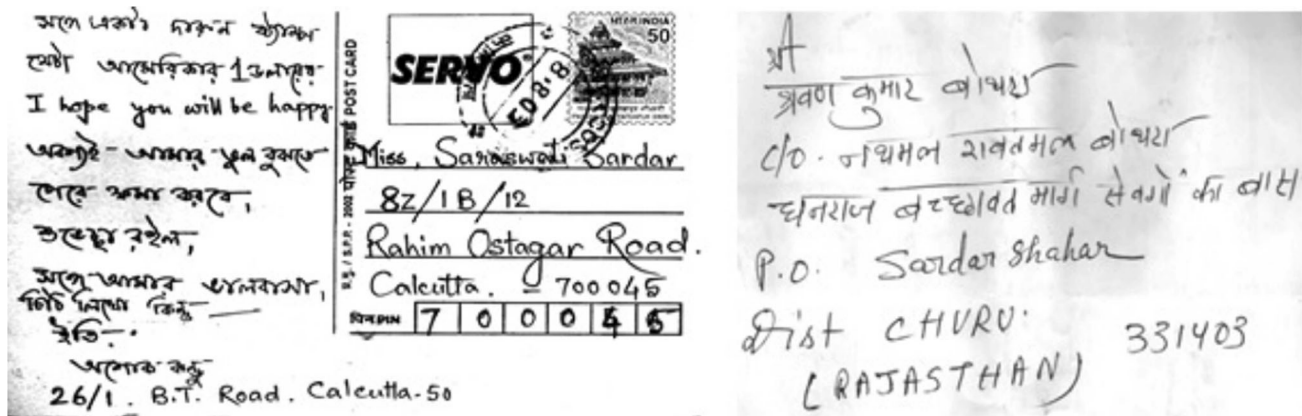 সঙ্গে একটা দারুন স্ট্যাম্প
যেটা আমেরিকার 1 ডলারের
I hope you will be happy
অবশ্যই আমার ভুল বুঝতে
পেরে ক্ষমা করবে,
শুভেচ্ছা রইল,
সঙ্গে আমার ভালবাসা,
চিঠি লিখো কিন্তু
ইতি
অশোক কুন্ডু
26/1. B.T. Road. Calcutta-50
R.S. / S.P.P. - 2002 पोस्ट कार्ड POST CARD
SERVO
INDIA
50
Miss, Saraswati Sardar
8Z/1B/12
Rahim Ostagar Road.
Calcutta. - 700045
पिन PIN 7 0 0 0 4 5
श्री
श्रवण कुमार बोथरा
C/O. नथमल रावतमल बोथरा
धनराज बच्छावत मार्ग सेवगों का बास
P.O. Sardar Shahar
Dist CHURU. 331403
(RAJASTHAN)